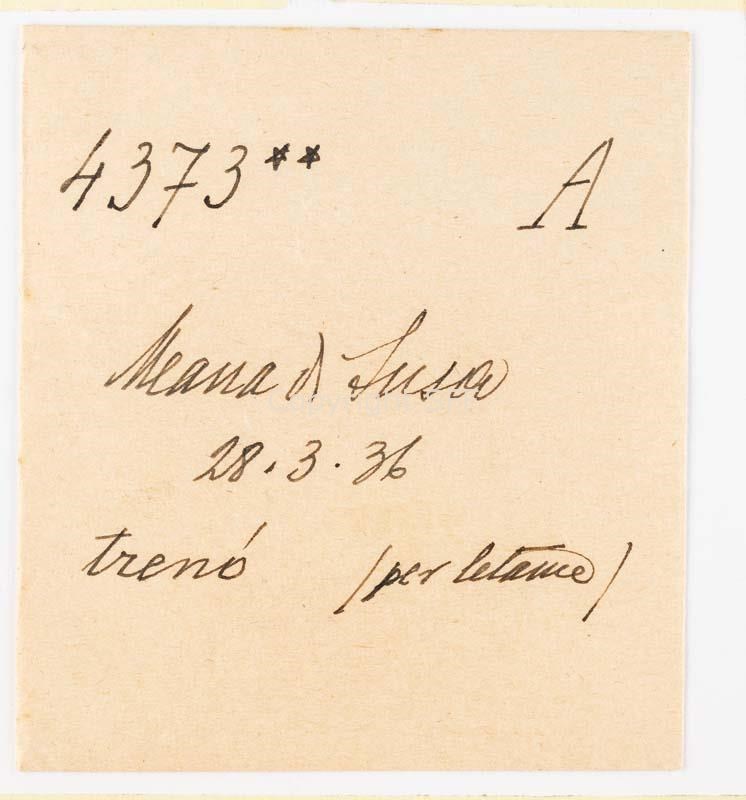 4373** A
Meana di Susa
28.3.36
trenó (per letame)